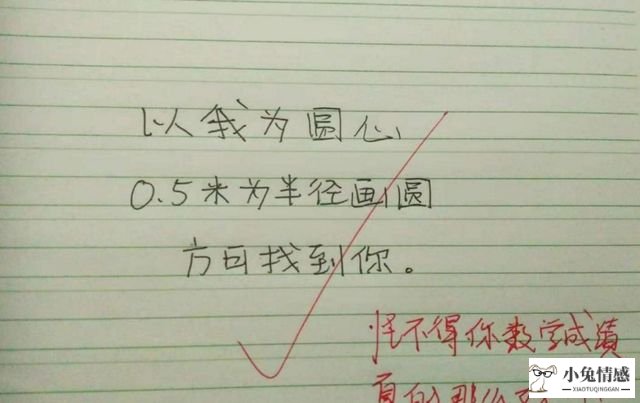 以我为圆心
0.5米为半径画圆
方可找到你。
怪不得你数学成绩
真的那么
小兔情感
XIAOTUQINGGAN